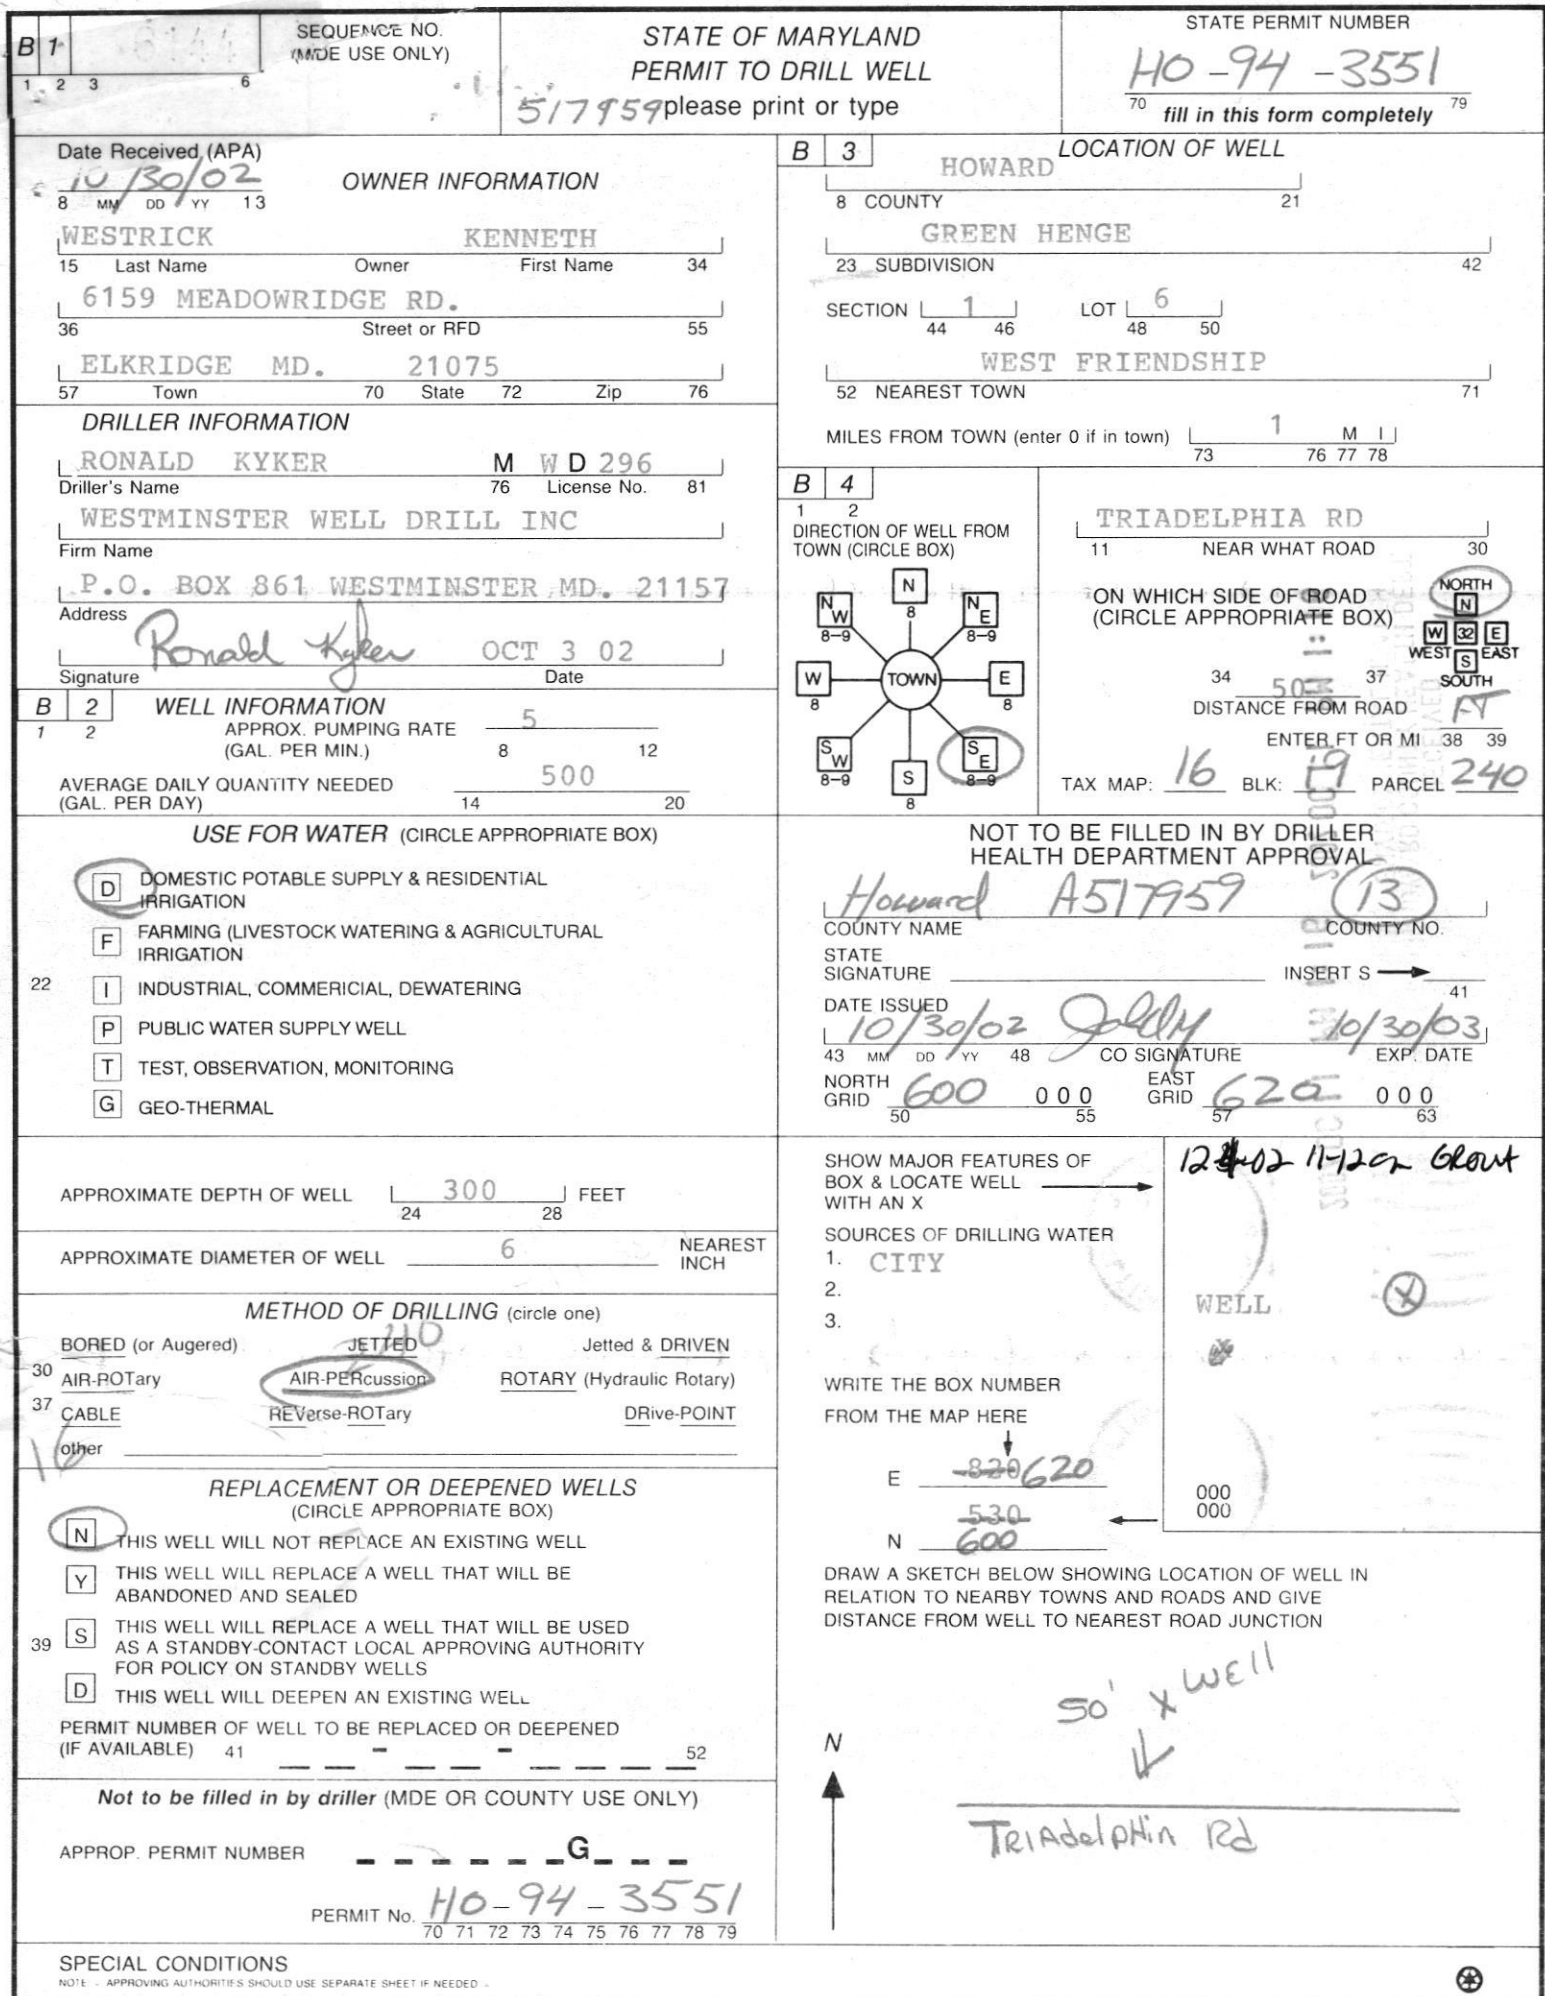 B 1
1 2 3 6
SEQUENCE NO.
(MDE USE ONLY)
STATE OF MARYLAND
PERMIT TO DRILL WELL
517959 please print or type
STATE PERMIT NUMBER
HO-94-3551
70 79
fill in this form completely
Date Received (APA)
10/30/02
8 MM DD YY 13
OWNER INFORMATION
WESTRICK KENNETH
15 Last Name Owner First Name 34
6159 MEADOWRIDGE RD.
36 Street or RFD 55
ELKRIDGE MD. 21075
57 Town 70 State 72 Zip 76
DRILLER INFORMATION
RONALD KYKER M W D 296
Driller's Name 76 License No. 81
WESTMINSTER WELL DRILL INC
Firm Name
P.O. BOX 861 WESTMINSTER MD. 21157
Address
Ronald Kyker OCT 3 02
Signature Date
B 2
1 2
WELL INFORMATION
APPROX. PUMPING RATE 5
(GAL. PER MIN.) 8 12
AVERAGE DAILY QUANTITY NEEDED 500
(GAL. PER DAY) 14 20
USE FOR WATER (CIRCLE APPROPRIATE BOX)
D DOMESTIC POTABLE SUPPLY & RESIDENTIAL
IRRIGATION
F FARMING (LIVESTOCK WATERING & AGRICULTURAL
IRRIGATION
22 I INDUSTRIAL, COMMERICIAL, DEWATERING
P PUBLIC WATER SUPPLY WELL
T TEST, OBSERVATION, MONITORING
G GEO-THERMAL
APPROXIMATE DEPTH OF WELL 300 FEET
24 28
APPROXIMATE DIAMETER OF WELL 6 NEAREST
INCH
METHOD OF DRILLING (circle one)
BORED (or Augered) JETTED Jetted & DRIVEN
30 AIR-ROTary AIR-PERcussion ROTARY (Hydraulic Rotary)
37 CABLE REVerse-ROTary DRive-POINT
other
16
REPLACEMENT OR DEEPENED WELLS
(CIRCLE APPROPRIATE BOX)
N THIS WELL WILL NOT REPLACE AN EXISTING WELL
Y THIS WELL WILL REPLACE A WELL THAT WILL BE
ABANDONED AND SEALED
39 S THIS WELL WILL REPLACE A WELL THAT WILL BE USED
AS A STANDBY-CONTACT LOCAL APPROVING AUTHORITY
FOR POLICY ON STANDBY WELLS
D THIS WELL WILL DEEPEN AN EXISTING WELL
PERMIT NUMBER OF WELL TO BE REPLACED OR DEEPENED
(IF AVAILABLE) 41 - - 52
Not to be filled in by driller (MDE OR COUNTY USE ONLY)
APPROP. PERMIT NUMBER G
PERMIT No. HO-94-3551
70 71 72 73 74 75 76 77 78 79
SPECIAL CONDITIONS
NOTE - APPROVING AUTHORITIES SHOULD USE SEPARATE SHEET IF NEEDED -
B 3
LOCATION OF WELL
HOWARD
8 COUNTY 21
GREEN HENGE
23 SUBDIVISION 42
SECTION 1 LOT 6
44 46 48 50
WEST FRIENDSHIP
52 NEAREST TOWN 71
MILES FROM TOWN (enter 0 if in town) 1 M I
73 76 77 78
B 4
1 2
DIRECTION OF WELL FROM
TOWN (CIRCLE BOX)
N
8
NW
8-9
NE
8-9
W
8
TOWN
E
8
SW
8-9
S
8
SE
8-9
TRIADELPHIA RD
11 NEAR WHAT ROAD 30
ON WHICH SIDE OF ROAD
(CIRCLE APPROPRIATE BOX)
NORTH
N
W 32 E
WEST EAST
S
SOUTH
34 50 37
DISTANCE FROM ROAD FT
ENTER FT OR MI 38 39
TAX MAP: 16 BLK: 19 PARCEL 240
NOT TO BE FILLED IN BY DRILLER
HEALTH DEPARTMENT APPROVAL
Howard A517959 13
COUNTY NAME COUNTY NO.
STATE
SIGNATURE INSERT S
41
DATE ISSUED
10/30/02 10/30/03
43 MM DD YY 48 CO SIGNATURE EXP. DATE
NORTH
GRID 600 000
50 55
EAST
GRID 620 000
57 63
SHOW MAJOR FEATURES OF
BOX & LOCATE WELL
WITH AN X
12-4-02 11-12 Grout
SOURCES OF DRILLING WATER
1. CITY
2.
3.
WELL X
WRITE THE BOX NUMBER
FROM THE MAP HERE
E 820 620
530
N 600
000
000
DRAW A SKETCH BELOW SHOWING LOCATION OF WELL IN
RELATION TO NEARBY TOWNS AND ROADS AND GIVE
DISTANCE FROM WELL TO NEAREST ROAD JUNCTION
50' x WEll
N
TRIAdelpHia Rd